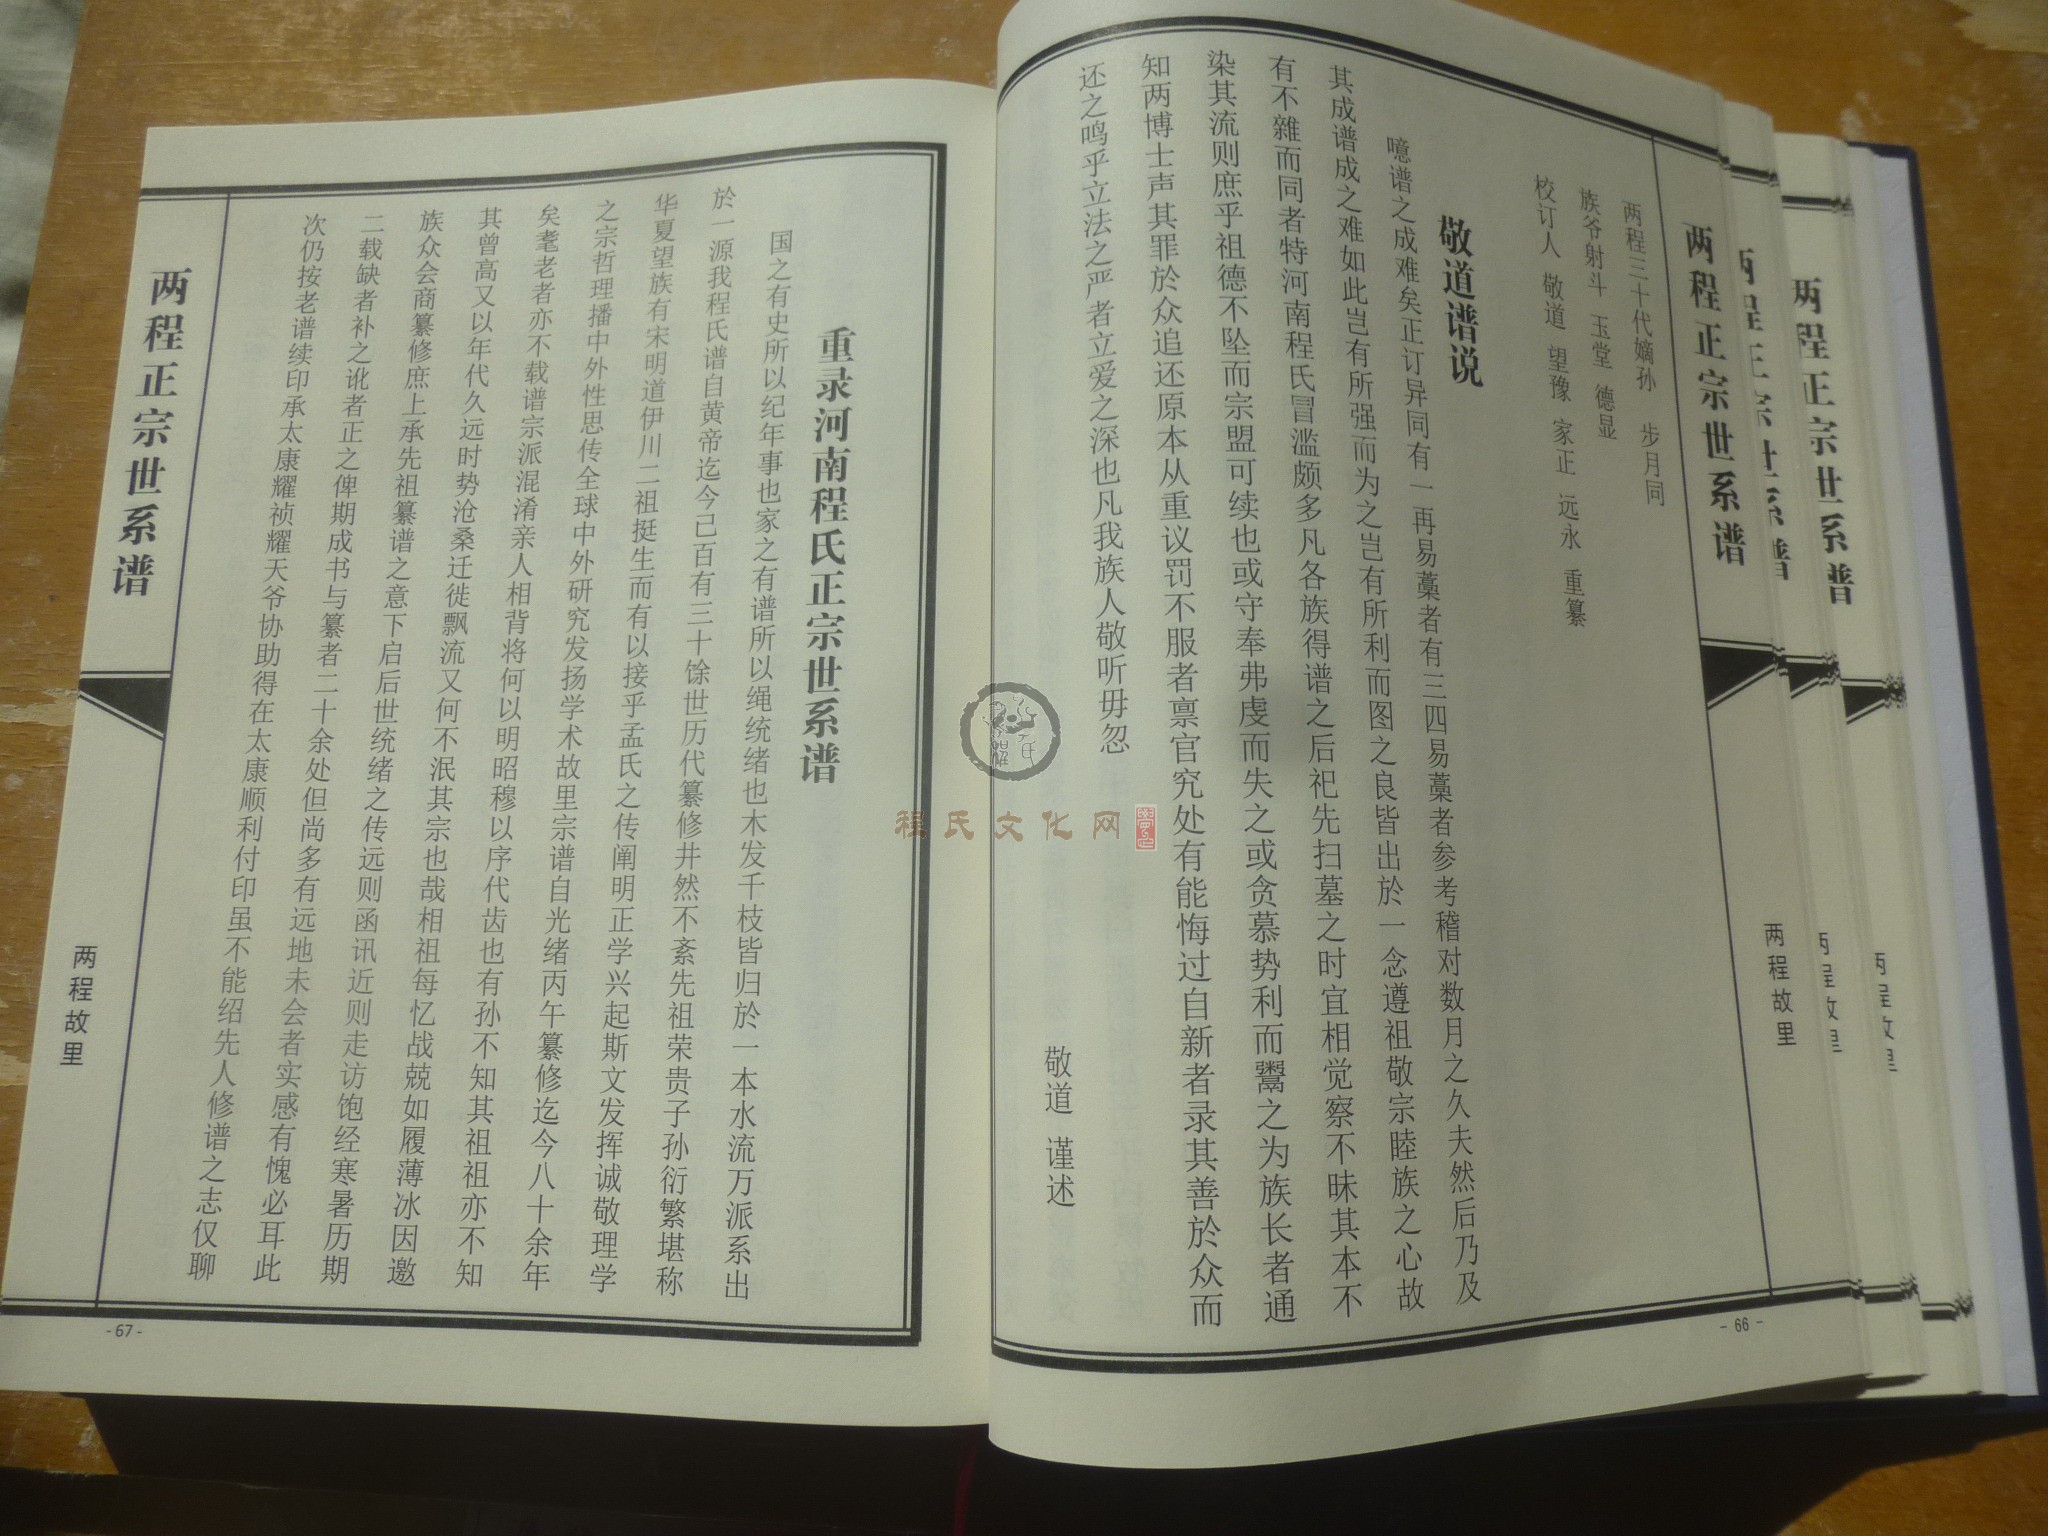 两程正宗世系谱
两程故里
两程三十代嫡孙 步月同
族爷射斗 玉堂 德显
校订人 敬道 望豫 家正 远永 重纂
敬道谱说
噫谱之成难矣正订异同有一再易藁者有三四易藁者参考稽对数月之久夫然后乃及
其成谱成之难如此岂有所强而为之岂有所利而图之良皆出於一念遵祖敬宗睦族之心故
有不雜而同者特河南程氏冒滥颇多凡各族得谱之后祀先扫墓之时宜相觉察不昧其本不
染其流则庶乎祖德不坠而宗盟可续也或守奉弗虔而失之或贪慕势利而鬻之为族长者通
知两博士声其罪於众追还原本从重议罚不服者禀官究处有能悔过自新者录其善於众而
还之鸣乎立法之严者立爱之深也凡我族人敬听毋忽
敬道 谨述
- 66 -
重录河南程氏正宗世系谱
国之有史所以纪年事也家之有谱所以绳统绪也木发千枝皆归於一本水流万派系出
於一源我程氏谱自黄帝迄今已百有三十馀世历代纂修井然不紊先祖荣贵子孙衍繁堪称
华夏望族有宋明道伊川二祖挺生而有以接乎孟氏之传阐明正学兴起斯文发挥诚敬理学
之宗哲理播中外性思传全球中外研究发扬学术故里宗谱自光绪丙午纂修迄今八十余年
矣耄老者亦不载谱宗派混淆亲人相背将何以明昭穆以序代齿也有孙不知其祖祖亦不知
其曾高又以年代久远时势沧桑迁徙飘流又何不泯其宗也哉相祖每忆战兢如履薄冰因邀
族众会商纂修庶上承先祖纂谱之意下启后世统绪之传远则函讯近则走访饱经寒暑历期
二载缺者补之讹者正之俾期成书与纂者二十余处但尚多有远地未会者实感有愧必耳此
次仍按老谱续印承太康耀祯耀天爷协助得在太康顺利付印虽不能绍先人修谱之志仅聊
- 67 -
两程正宗世系谱
两程故里
两程正宗世系谱
两程故里
两程正宗世系谱
两程故里
程氏文化网